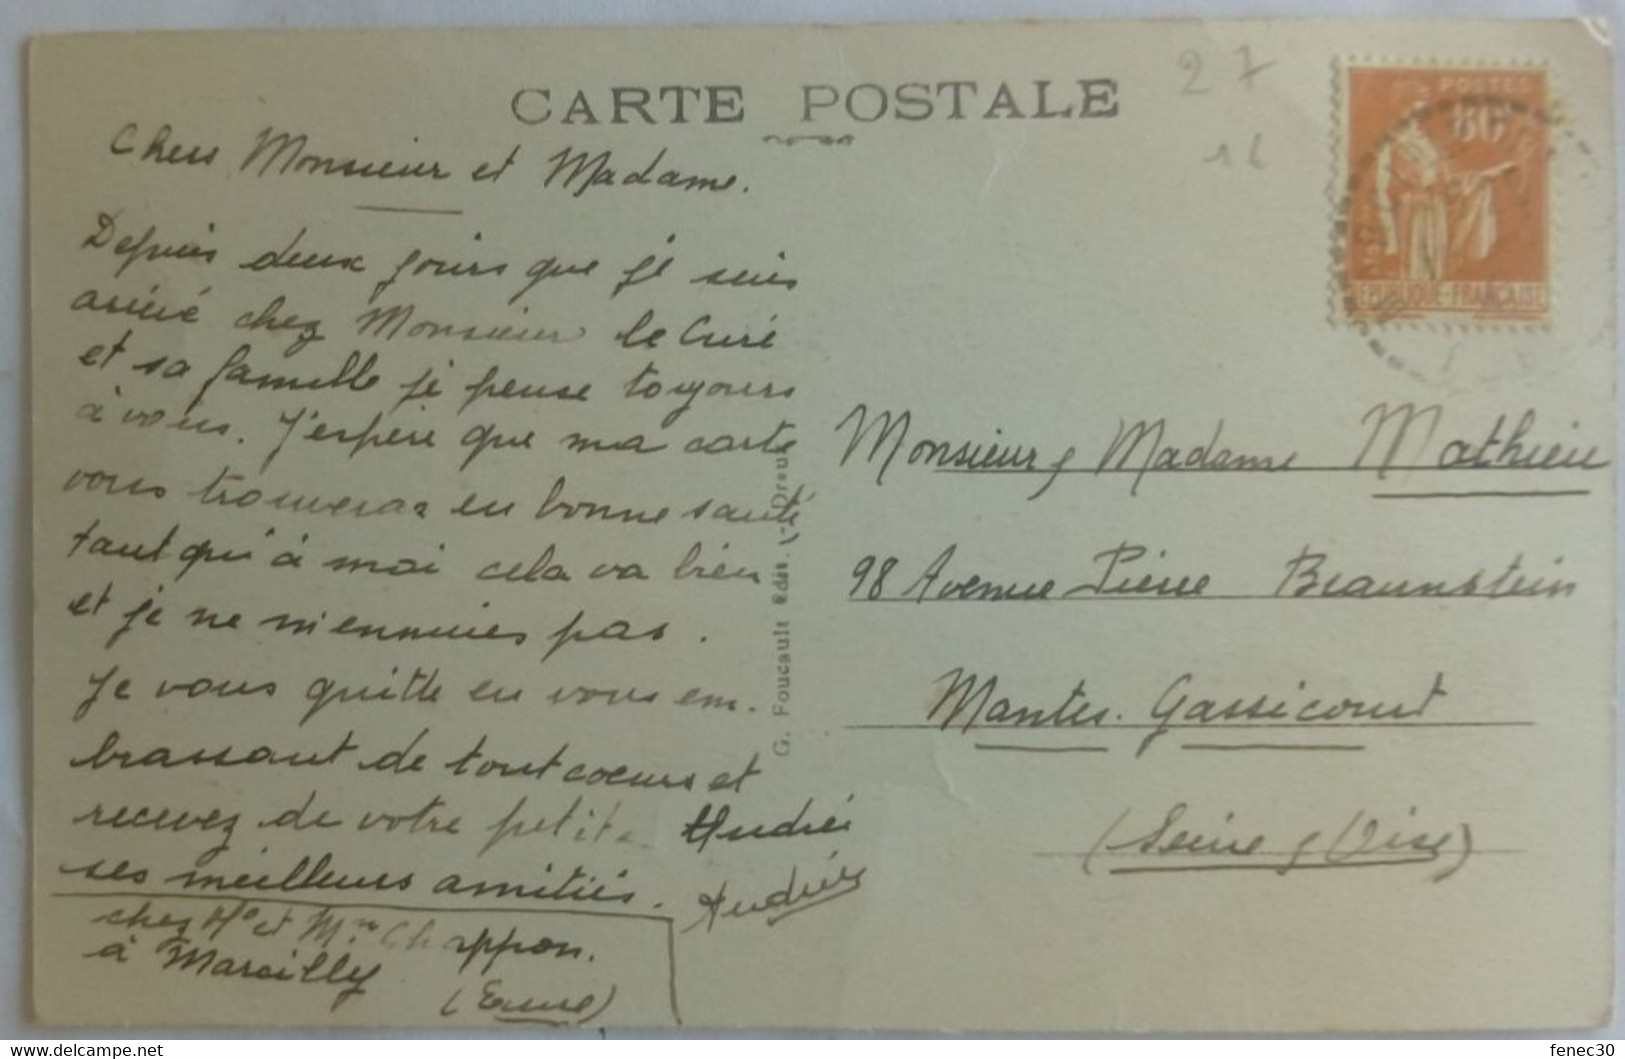 CARTE POSTALE
27
16
Chers Monsieur et Madame.
Depuis deux jours que je suis
arrivé chez Monsieur le Curé
et sa famille je pense toujours
à vous. J'espère que ma carte
vous trouveras en bonne santé
tant qu'à moi cela va bien
et je ne m'ennuies pas.
Je vous quitte en vous em-
brassant de tout coeurs et
recevez de votre petit André
ses meilleurs amitiés.
André
chez Mr et Mme Chappon.
à Marcilly
(Eure)
G. Foucault Edit.
POSTES
80
REPUBLIQUE-FRANÇAISE
Monsieur & Madame Mathieu
98 Avenue Pierre Braunstein
Mantes-Gassicourt
(Seine & Oise)
www.delcampe.net
fenec30